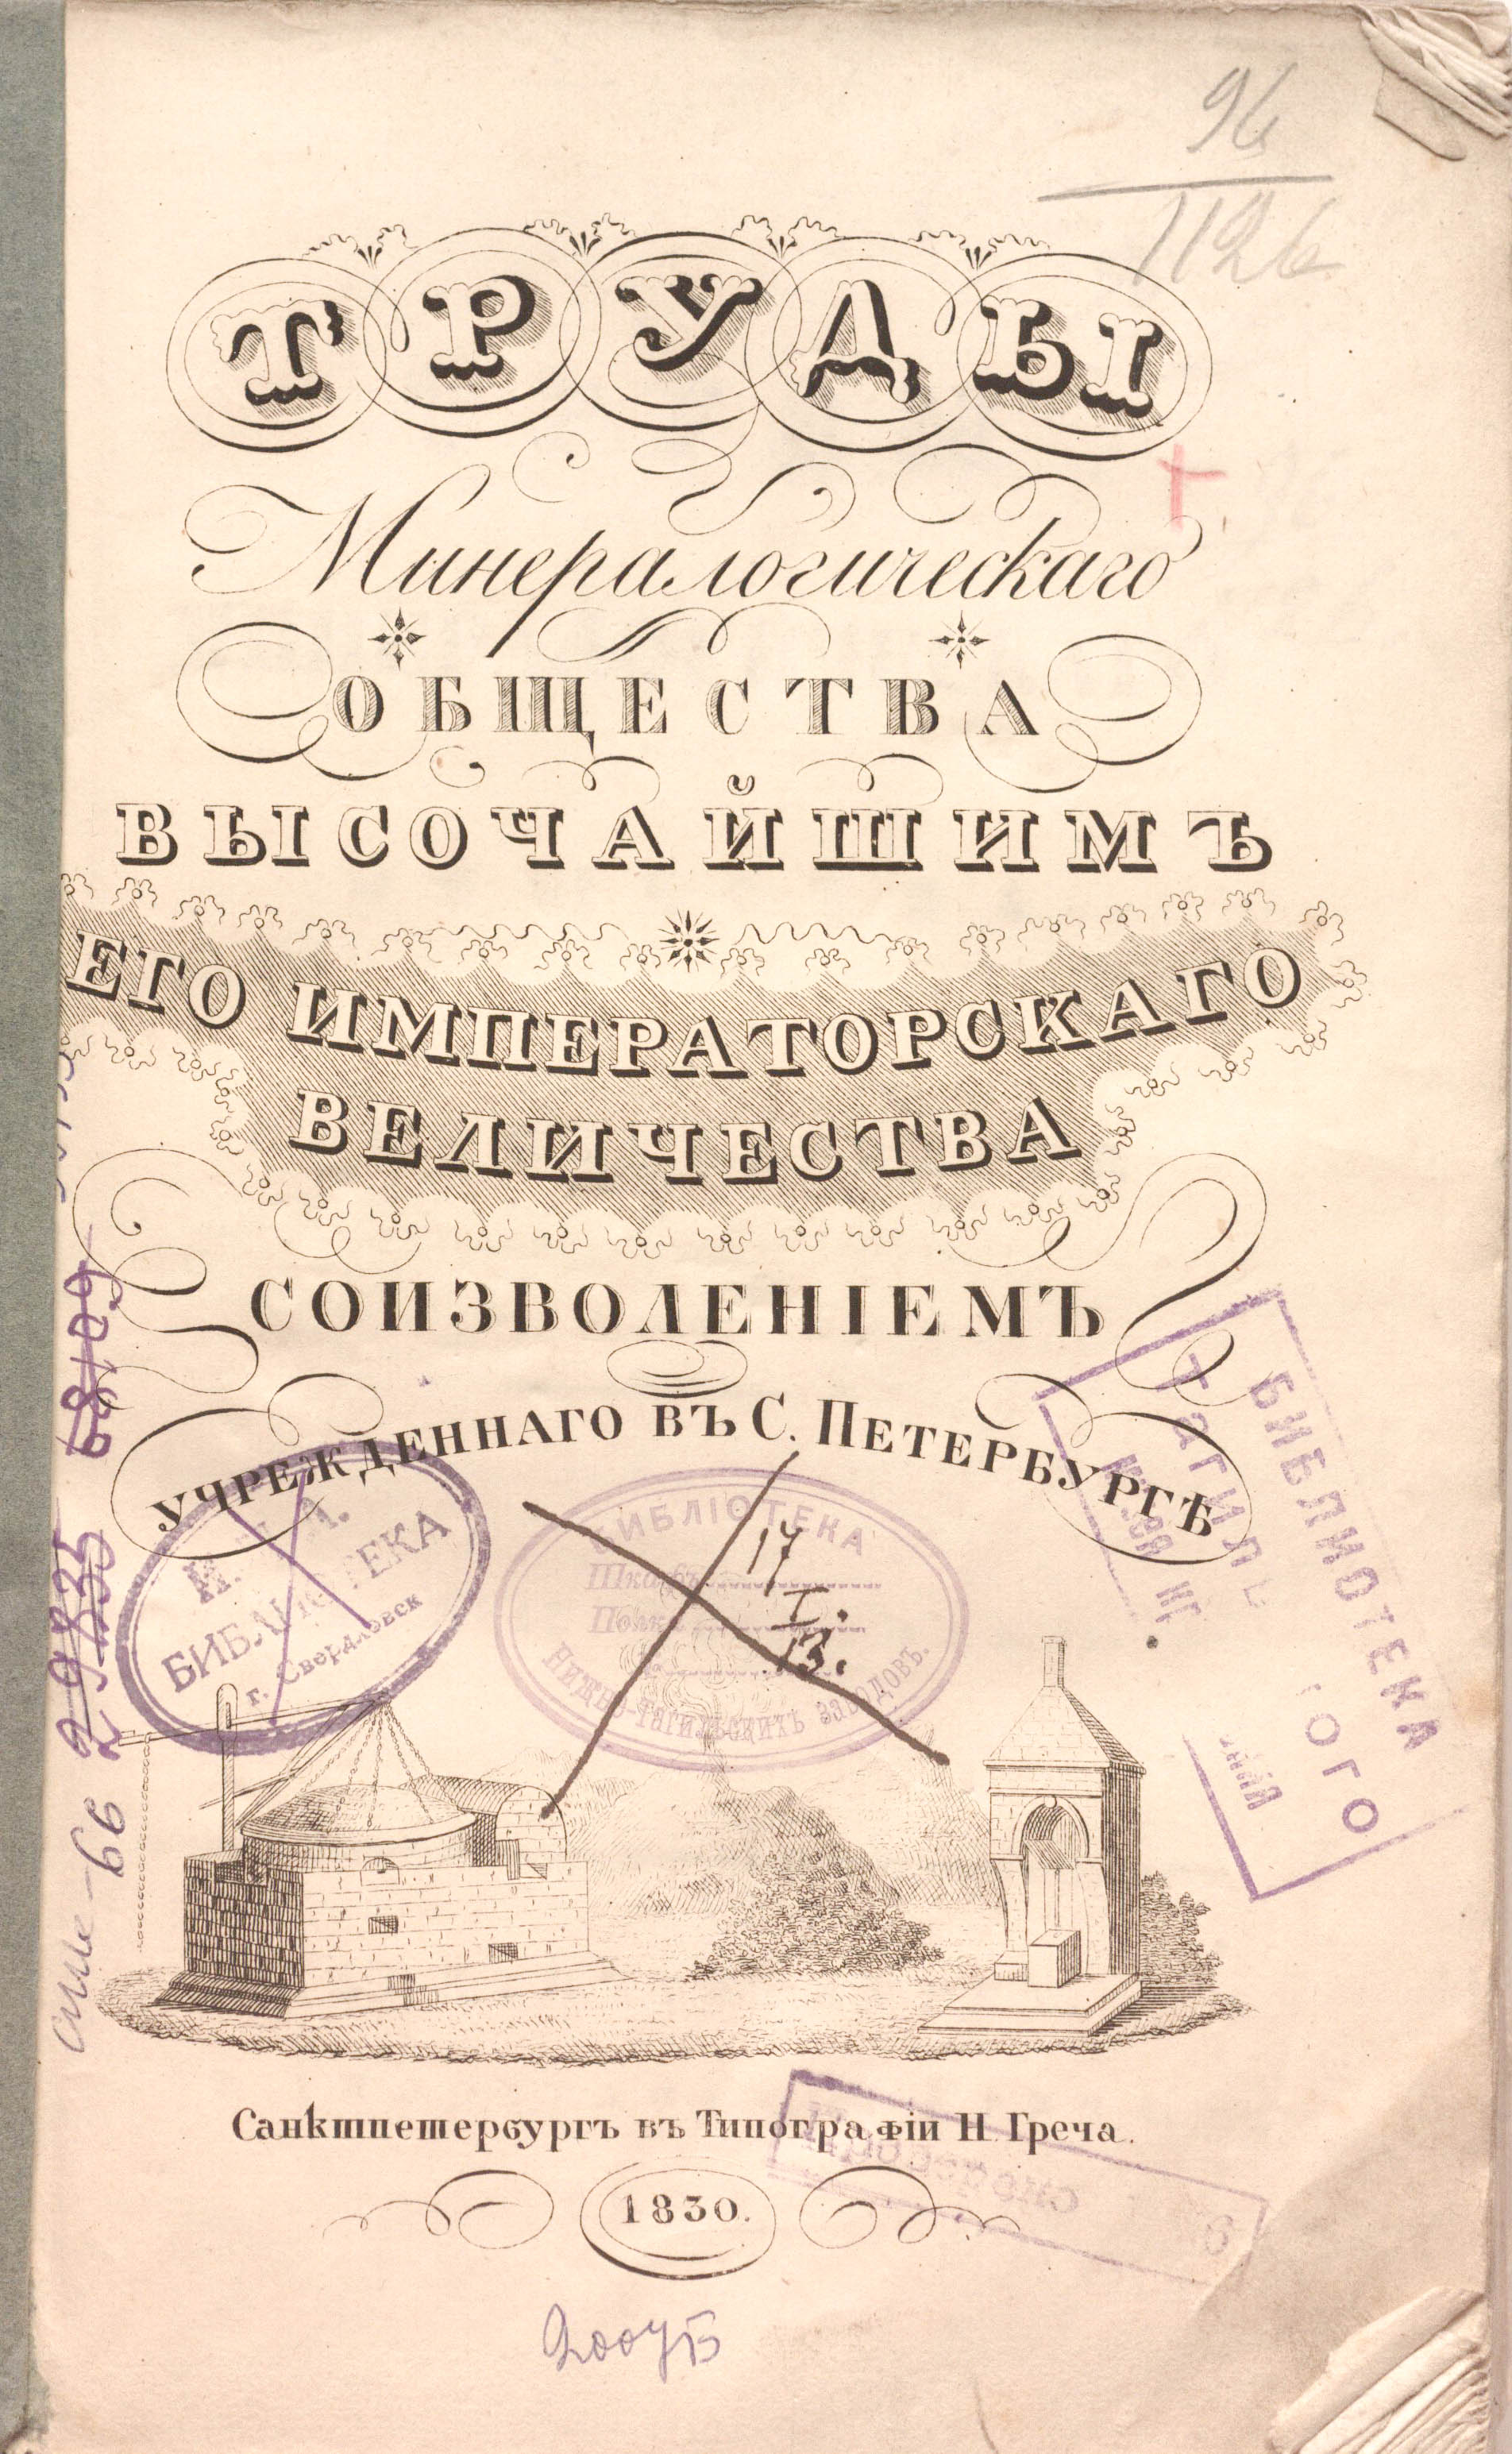 96
1126
ТРУДЫ
Минералогическаго
ОБЩЕСТВА
ВЫСОЧАЙШИМЪ
ЕГО ИМПЕРАТОРСКАГО
ВЕЛИЧЕСТВА
СОИЗВОЛЕНІЕМЪ
УЧРЕЖДЕННАГО ВЪ С. ПЕТЕРБУРГѢ
БИБЛИОТЕКА
г. Свердловск
БИБЛІОТЕКА
Шкафъ 17
Полка I.
13.
Нижне-Тагильскихъ заводовъ.
БИБЛИОТЕКА
ТАГИЛЬ
ОГО
68109
Санктпетербургъ въ Типографіи Н. Греча.
1830.